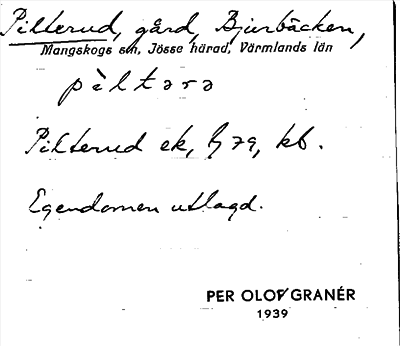 Pilterud, gård, Bjurbäcken,
Mangskogs sn, Jösse härad, Värmlands län
pìltərə
Pilterud ek, G 79, kb.
Egendomen utlagd.
PER OLOF GRANÉR
1939